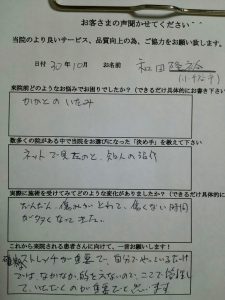 お客さまの声聞かせてください
当院のより良いサービス、品質向上の為、ご協力をお願い致します。
日付 30年10月 お名前 和田
来院前どのようなお悩みでお困りでしたか？（できるだけ具体的にお書き下さい
かかとのいたみ
数多くの院がある中で当院をお選びになった「決め手」を教えて下さい
ネットで見たのと、知人の紹介
実際に施術を受けてみてどのような変化がありましたか？（できるだけ具体的に
だんだん、痛みがとれて、痛くない時間
が多くなってきた。
これから来院される患者さんに向けて、一言お願いします！
ストレッチが重要で、自分でやっているだけ
ではなかなか的をえないので、ここで指導して
いただくのが重要だと思います